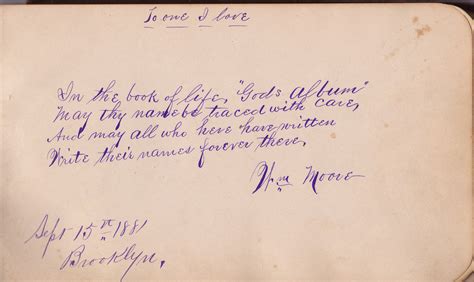 To one I love
In the book of life, "God's Album"
May thy name be traced with care,
And may all who here have written
Write their names forever there.
Wm Moore
Sept 15th 1881
Brooklyn.